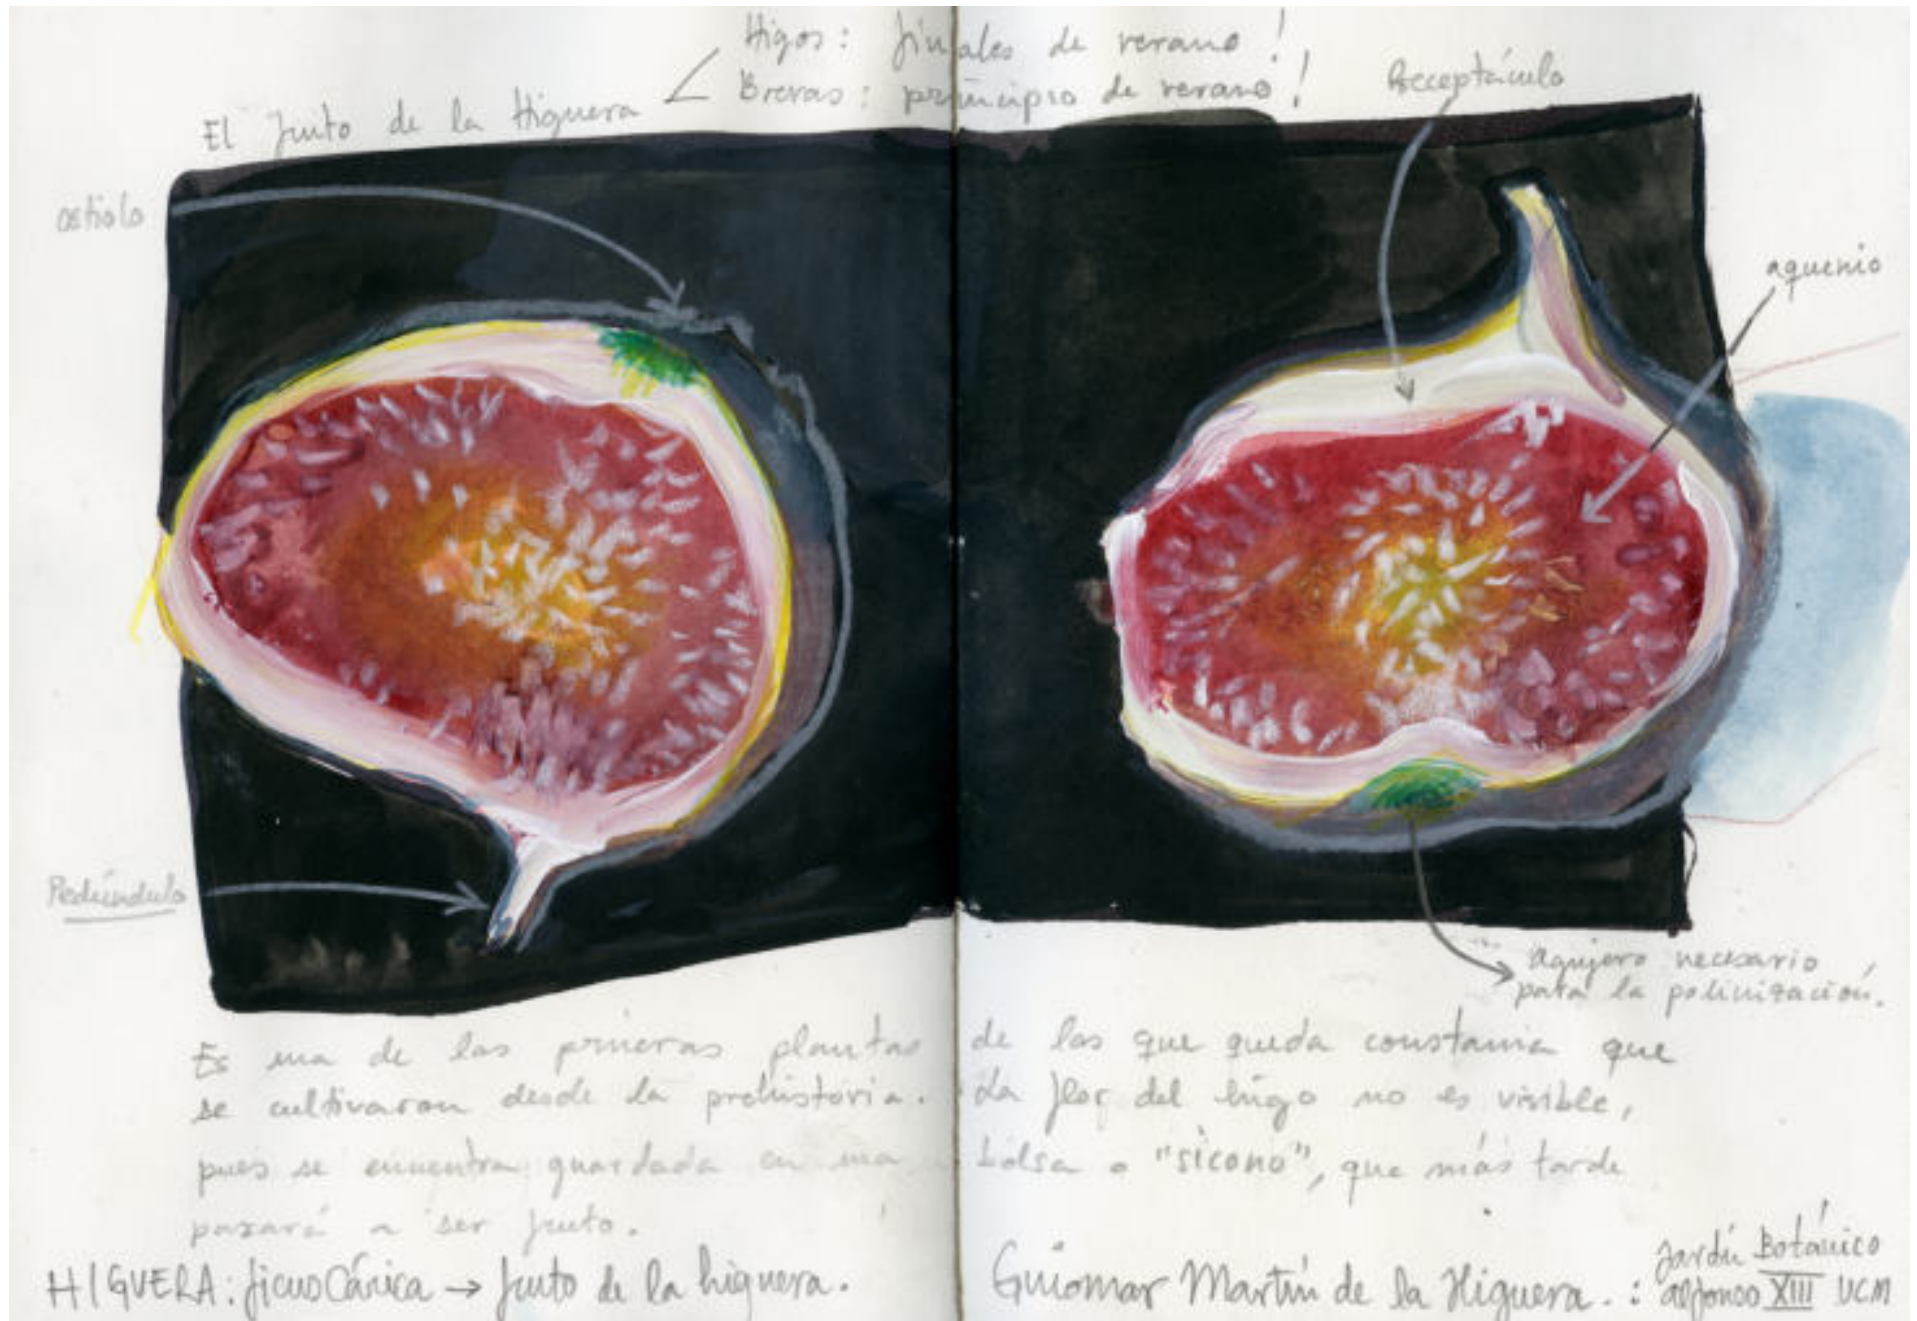 Higos: finales de verano!
El fruto de la Higuera < Brevas: principio de verano!
Receptáculo
ostiolo
aquenio
Pedúndulo
agujero necesario
para la polinización.
Es una de las primeras plantas de las que queda constancia que
se cultivaron desde la prehistoria. La flor del higo no es visible,
pues se encuentra guardada en una bolsa o "sicono", que más tarde
pasará a ser fruto.
HIGUERA: ficus Cárica → fruto de la higuera.
Guiomar Martín de la Higuera. : Jardín Botánico
alfonso XIII UCM